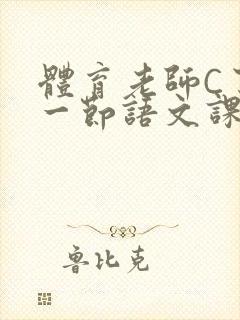 體育老師C
一節語文課
魯比克